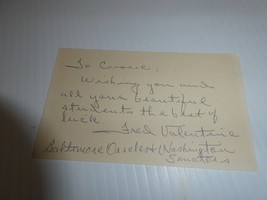 To Connie:
Wishing you and
all your beautiful
students the best of
luck
—Fred Valentine
Baltimore Orioles & Washington
Senators